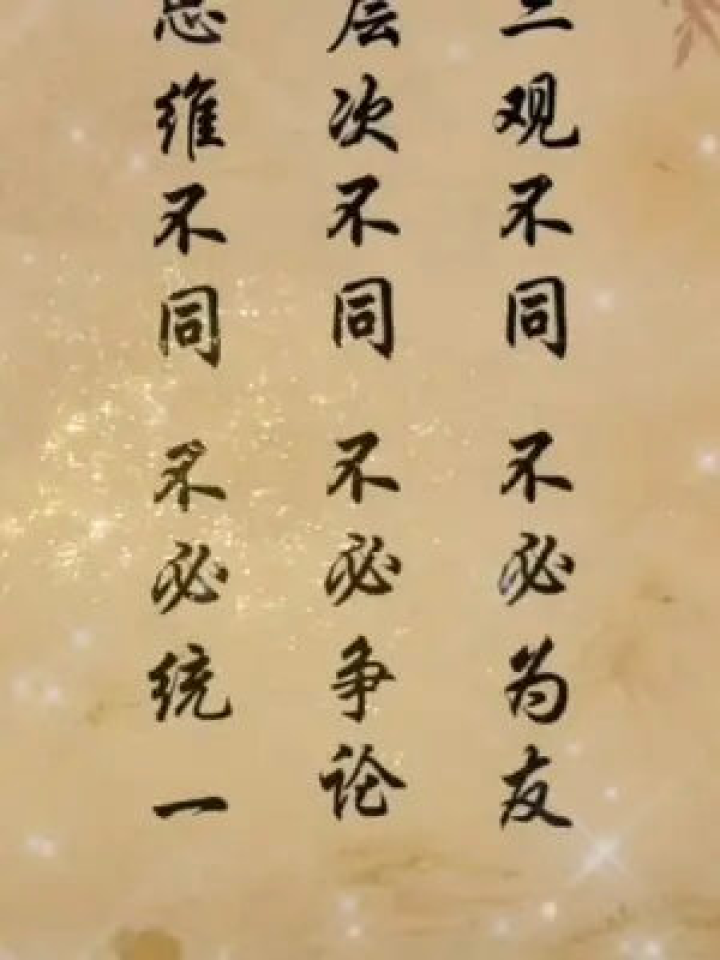 三观不同 不必为友
层次不同 不必争论
思维不同 不必统一